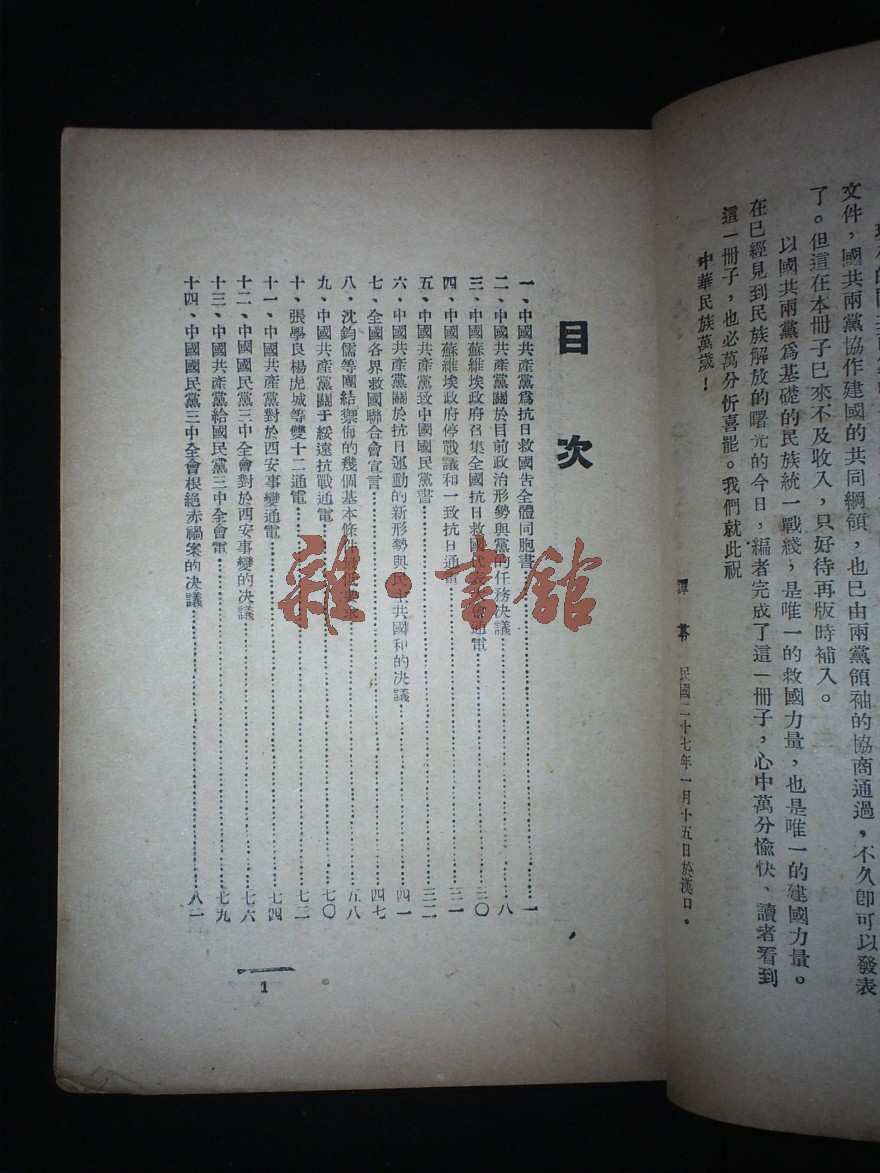 文件，國共兩黨協作建國的共同綱領，也已由兩黨領袖的協商通過，不久卽可以發表
了。但這在本冊子已來不及收入，只好待再版時補入。
以國共兩黨爲基礎的民族統一戰綫，是唯一的救國力量，也是唯一的建國力量。
在已經見到民族解放的曙光的今日，編者完成了這一冊子，心中萬分愉快、讀者看到
這一冊子，也必萬分忻喜罷。我們就此祝
中華民族萬歲！
譚 民國二十七年一月十五日於漢口。
目次
一、中國共產黨爲抗日救國吿全體同胞書……一
二、中國共產黨關於目前政治形勢與黨的任務决議……八
三、中國蘇維埃政府召集全國抗日救國代表大會通電……三〇
四、中國蘇維埃政府停戰議和一致抗日通電……三一
五、中國共產黨致中國國民黨書……三二
六、中國共產黨關於抗日運動的新形勢與民主共國和的决議……四一
七、全國各界救國聯合會宣言……四七
八、沈鈞儒等團結禦侮的幾個基本條件……五八
九、中國共產黨關于綏遠抗戰通電……七〇
十、張學良楊虎城等雙十二通電……七二
十一、中國共產黨對於西安事變通電……七四
十二、中國國民黨三中全會對於西安事變的决議……七六
十三、中國共產黨給國民黨三中全會電……七九
十四、中國國民黨三中全會根絕赤禍案的决議……八一
1
雜·書館